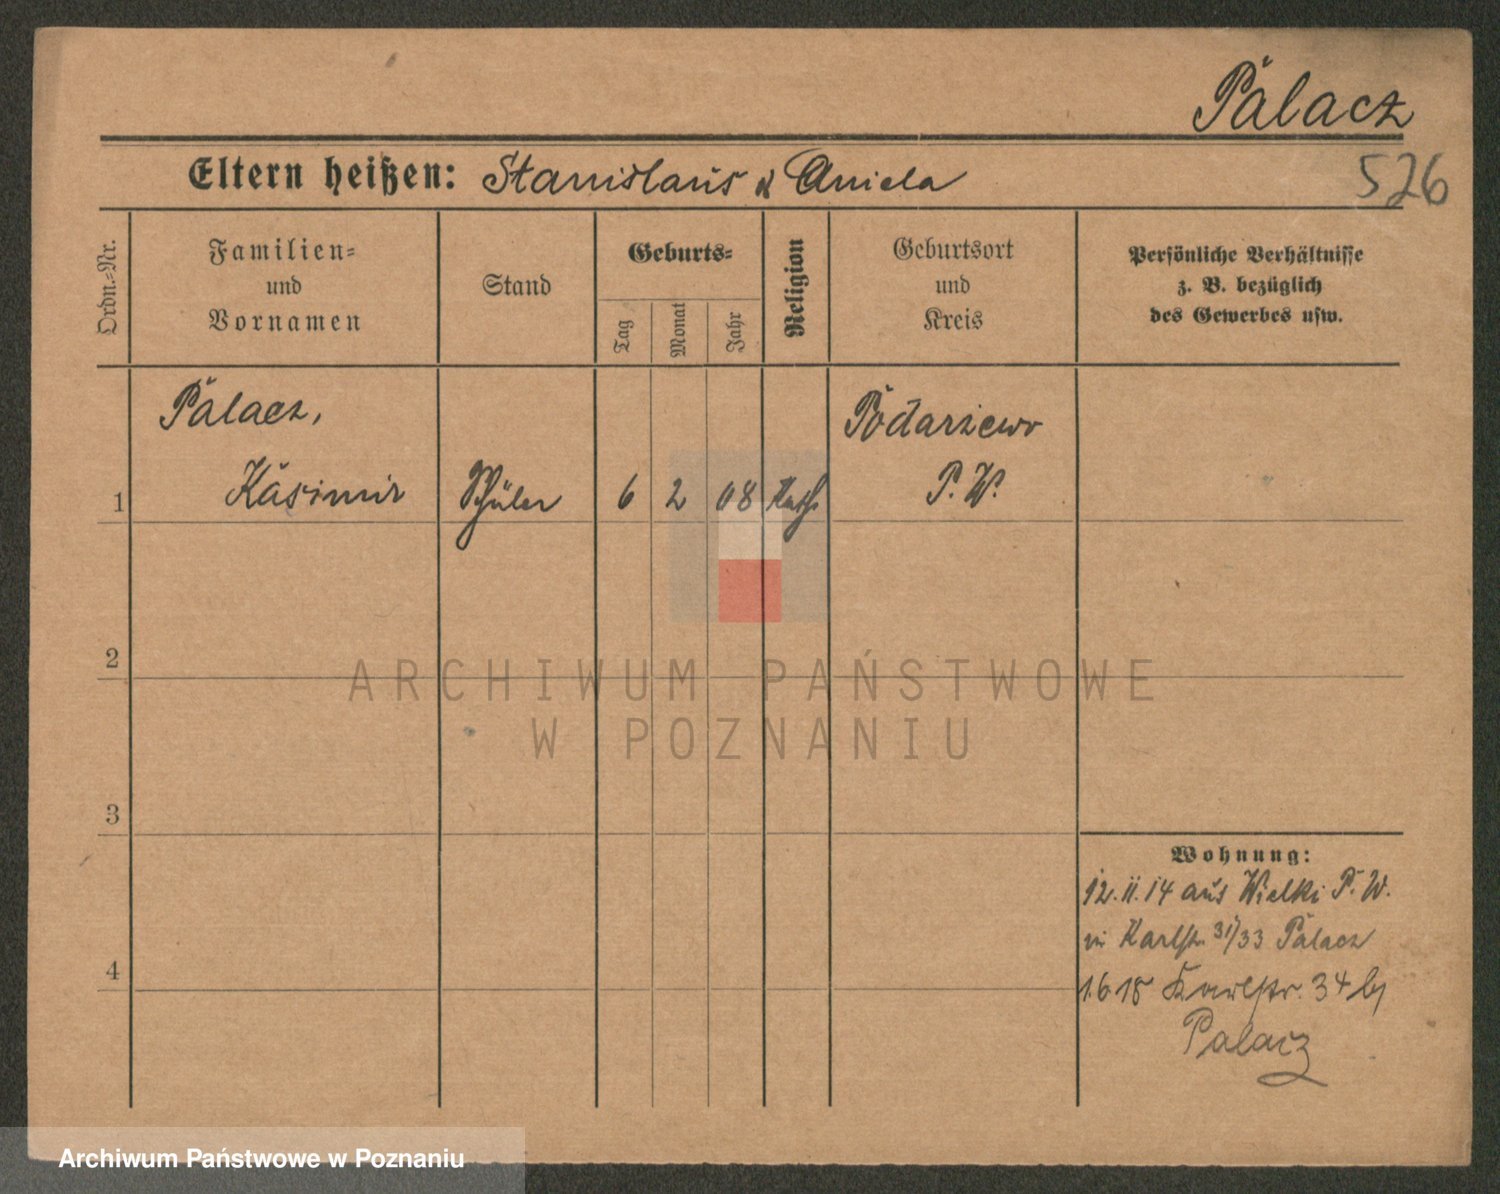 Palacz
Eltern heißen: Stanislaus & Aniela
526
Ordn.-Nr.
Familien-
und
Vornamen
Stand
Geburts-
Tag
Monat
Jahr
Religion
Geburtsort
und
Kreis
Persönliche Verhältnisse
z. B. bezüglich
des Gewerbes usw.
Palacz,
Podarzewo
1 Kasimir Schüler 6 2 08 Kath. P. W.
2
ARCHIWUM PAŃSTWOWE
W POZNANIU
3
Wohnung:
12.11.14 aus Wielki P. W.
Karlstr. 31/33 Palacz
4
1.6.18 Karlstr. 34 b/
Palacz
Archiwum Państwowe w Poznaniu